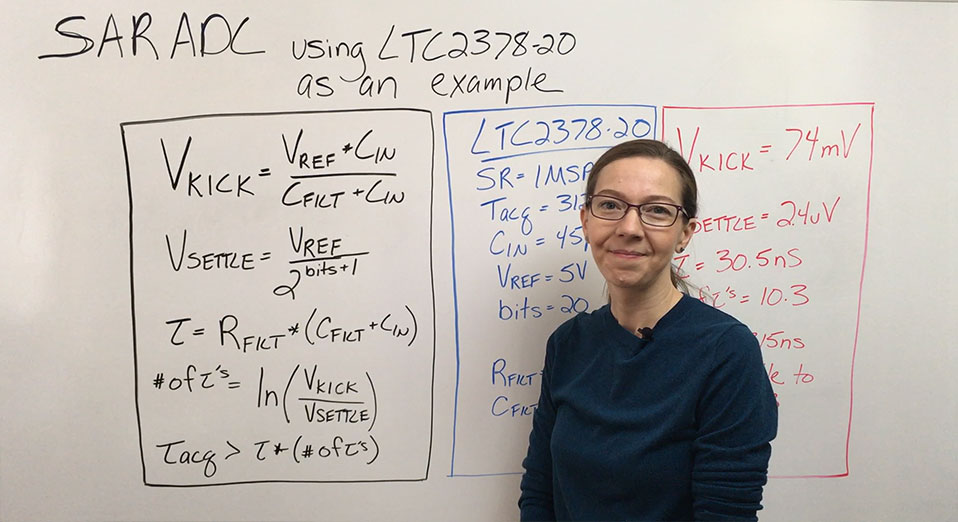 SAR ADC using LTC2378-20
as an example
VKICK = VREF * CIN / CFILT + CIN
VSETTLE = VREF / 2^bits+1
τ = RFILT * (CFILT + CIN)
# of τ's = ln(VKICK / VSETTLE)
Tacq > τ * (# of τ's)
LTC2378-20
SR = 1MSP
Tacq = 31
CIN = 45
VREF = 5V
bits = 20
RFILT
CFILT
VKICK = 74mV
SETTLE = 2.4uV
τ = 30.5ns
of τ's = 10.3
15ns
le to